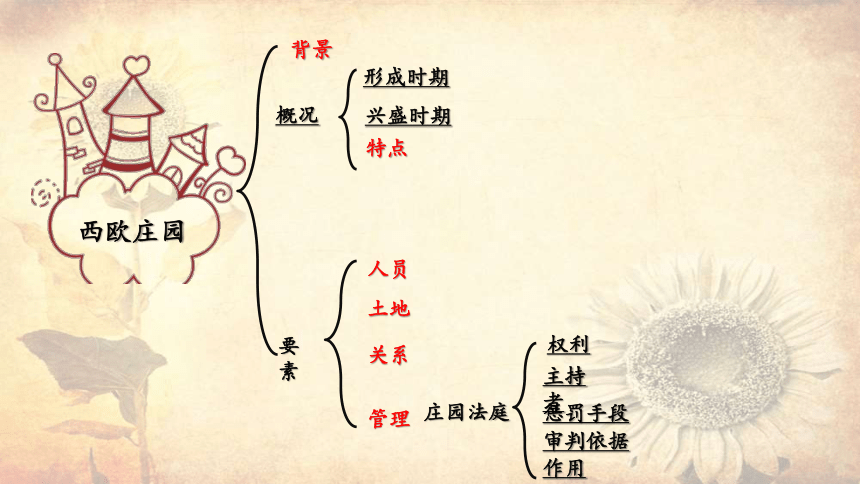 背景
形成时期
概况
兴盛时期
特点
西欧庄园
人员
土地
要
素
关系
管理
庄园法庭
权利
主持
者
惩罚手段
审判依据
作用